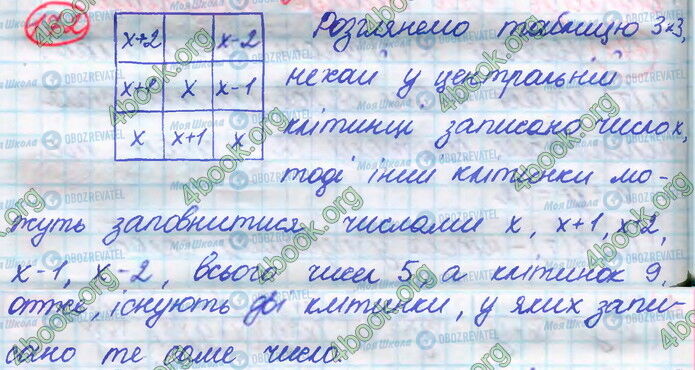 132
x+2 x-2
x+1 x x-1
x x+1 x
Розглянемо таблицю 3×3,
нехай у центральній
клітинці записано число x,
тоді інші клітинки мо-
жуть заповнитися числами x, x+1, x+2,
x-1, x-2, всього чисел 5, а клітинок 9,
отже, існують дві клітинки, у яких запи-
сано те саме число.
4book.org
Моя Школа
OBOZREVATEL